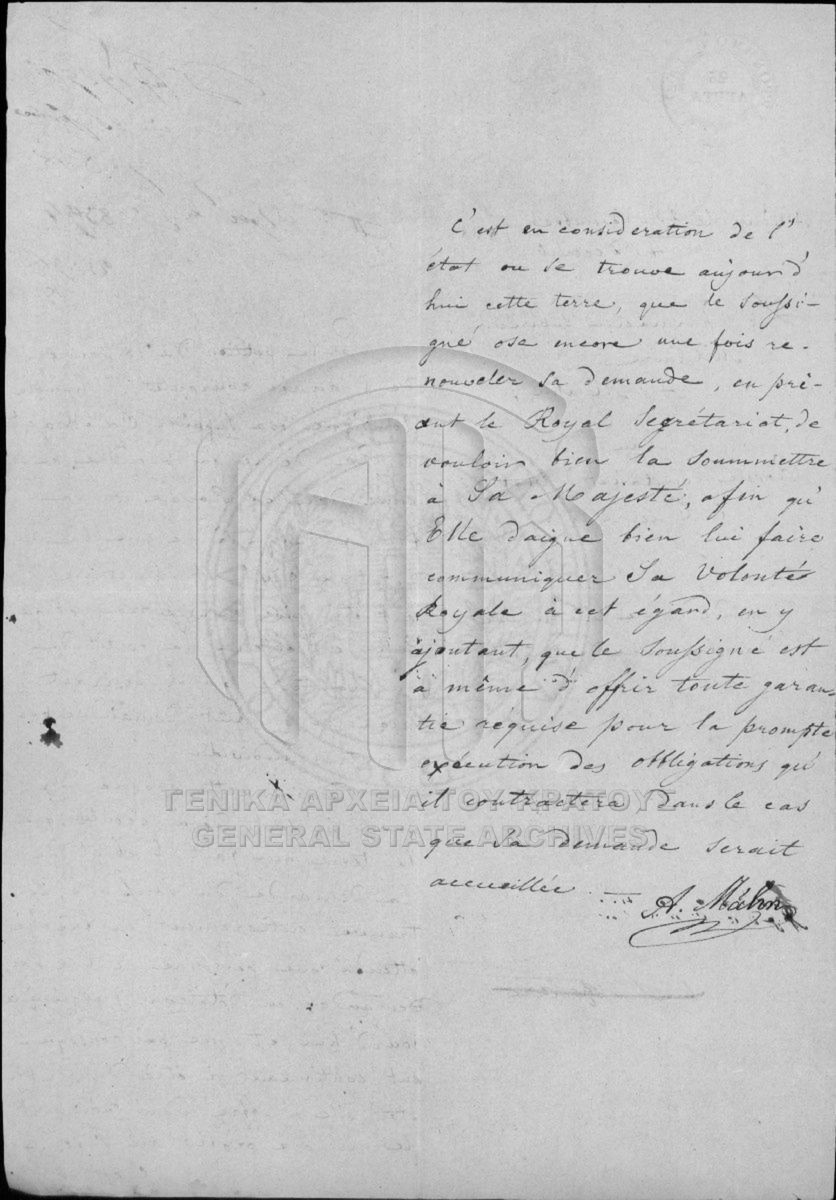 C'est en consideration de l'
état ou se trouve aujourd'
hui cette terre, que le soussi-
gné ose encore une fois re-
nouveler sa demande, en pri-
ant le Royal Secrétariat, de
vouloir bien la soummettre
à Sa Majesté, afin qu'
Elle daigne bien lui faire
communiquer Sa Volonté
Royale à cet égard, en y
ajoutant, que le soussigné est
à même d'offrir toute garan-
tie requise pour la prompte
exécution des obbligations qu'
il contractera dans le cas
que sa demande serait
accueillée
A. Mähn
ΓΕΝΙΚΑ ΑΡΧΕΙΑ ΤΟΥ ΚΡΑΤΟΥΣ
GENERAL STATE ARCHIVES